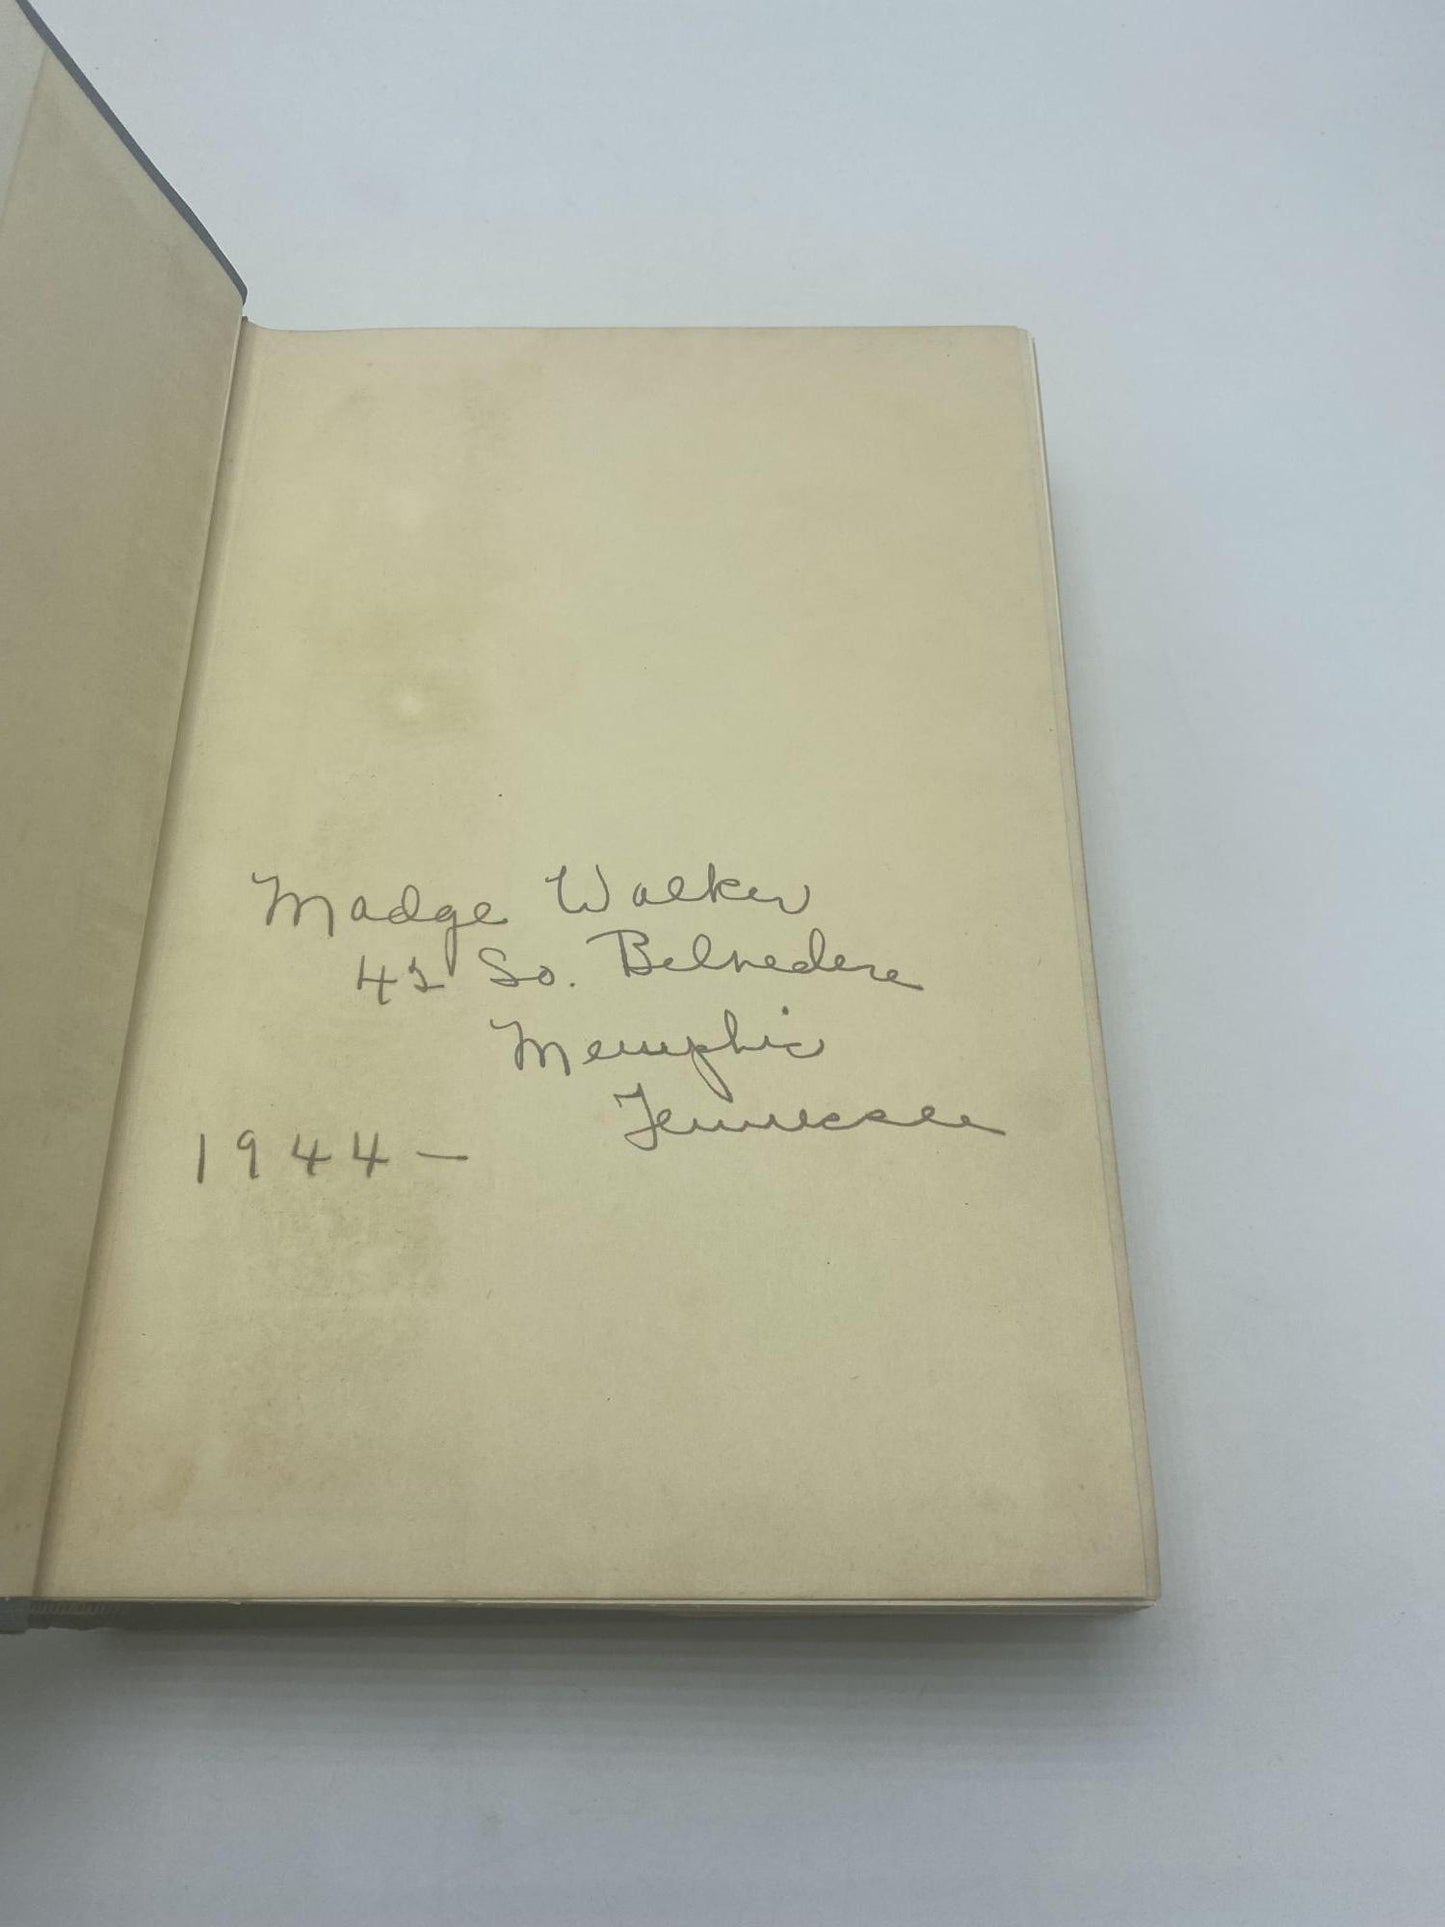 Madge Walker
42 So. Belvedere
Memphis
Tennessee
1944 —